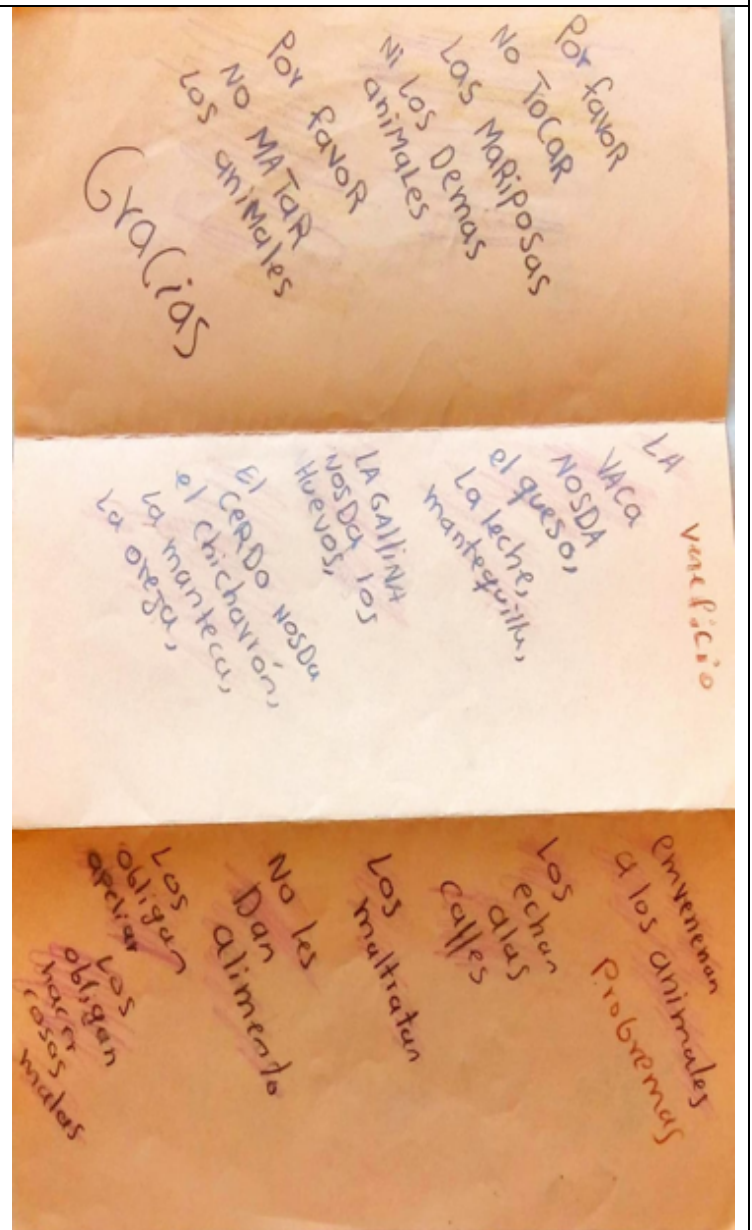 Por favoR
No ToCaR
Las MaRiposas
Ni Los Demas
aniMaLes
Por favoR
NO MATaR
Los aniMales
Gracias
Veneficio
LA
VACa
NOSDA
el queso,
La leche,
mantequilla,
LA GAlliNA
NOSDa los
Huevos,
El
CERDO NOSDa
el chicharrón,
La manteca,
La oreja,
Probremas
emvenenan
a los animales
Los
echan
alas
calles
Los
maltratan
No les
Dan
alimento
Los
obligan
apeliar
Los
obligan
hacer
cosas
malas